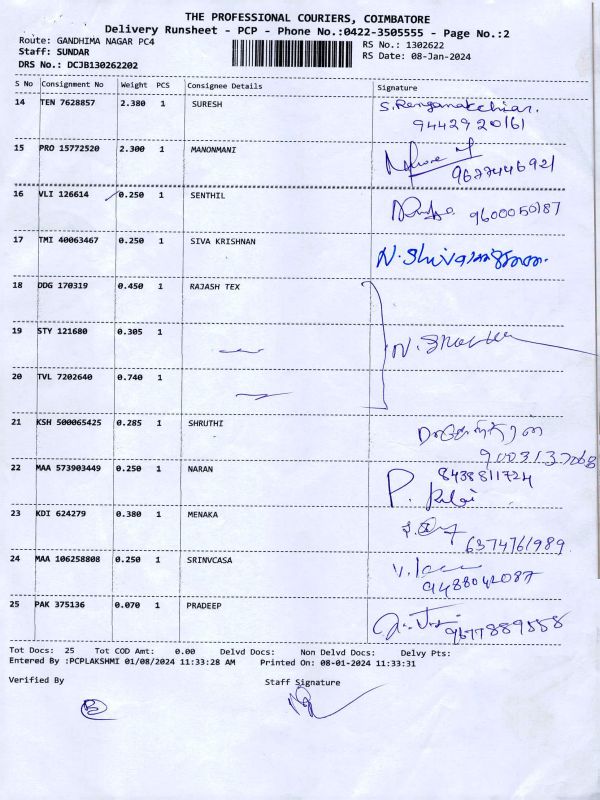 THE PROFESSIONAL COURIERS, COIMBATORE
Delivery Runsheet - PCP - Phone No.:0422-3505555 - Page No.:2
Route: GANDHIMA NAGAR PC4
Staff: SUNDAR
DRS No.: DCJB130262202
RS No.: 1302622
RS Date: 08-Jan-2024
S No Consignment No Weight PCS Consignee Details Signature
14 TEN 7628857 2.380 1 SURESH S. Renganakchiar.
9442920161
15 PRO 15772520 2.300 1 MANONMANI
9627446921
16 VLI 126614 0.250 1 SENTHIL 9600050187
17 TMI 40063467 0.250 1 SIVA KRISHNAN
18 DDG 170319 0.450 1 RAJASH TEX
19 STY 121680 0.305 1
20 TVL 7202640 0.740 1
21 KSH 500065425 0.285 1 SHRUTHI
22 MAA 573903449 0.250 1 NARAN 8438811724
23 KDI 624279 0.380 1 MENAKA
6374761989
24 MAA 106258808 0.250 1 SRINVCASA
9488042087
25 PAK 375136 0.070 1 PRADEEP 9677889558
Tot Docs: 25 Tot COD Amt: 0.00 Delvd Docs: Non Delvd Docs: Delvy Pts:
Entered By :PCPLAKSHMI 01/08/2024 11:33:28 AM Printed On: 08-01-2024 11:33:31
Verified By Staff Signature